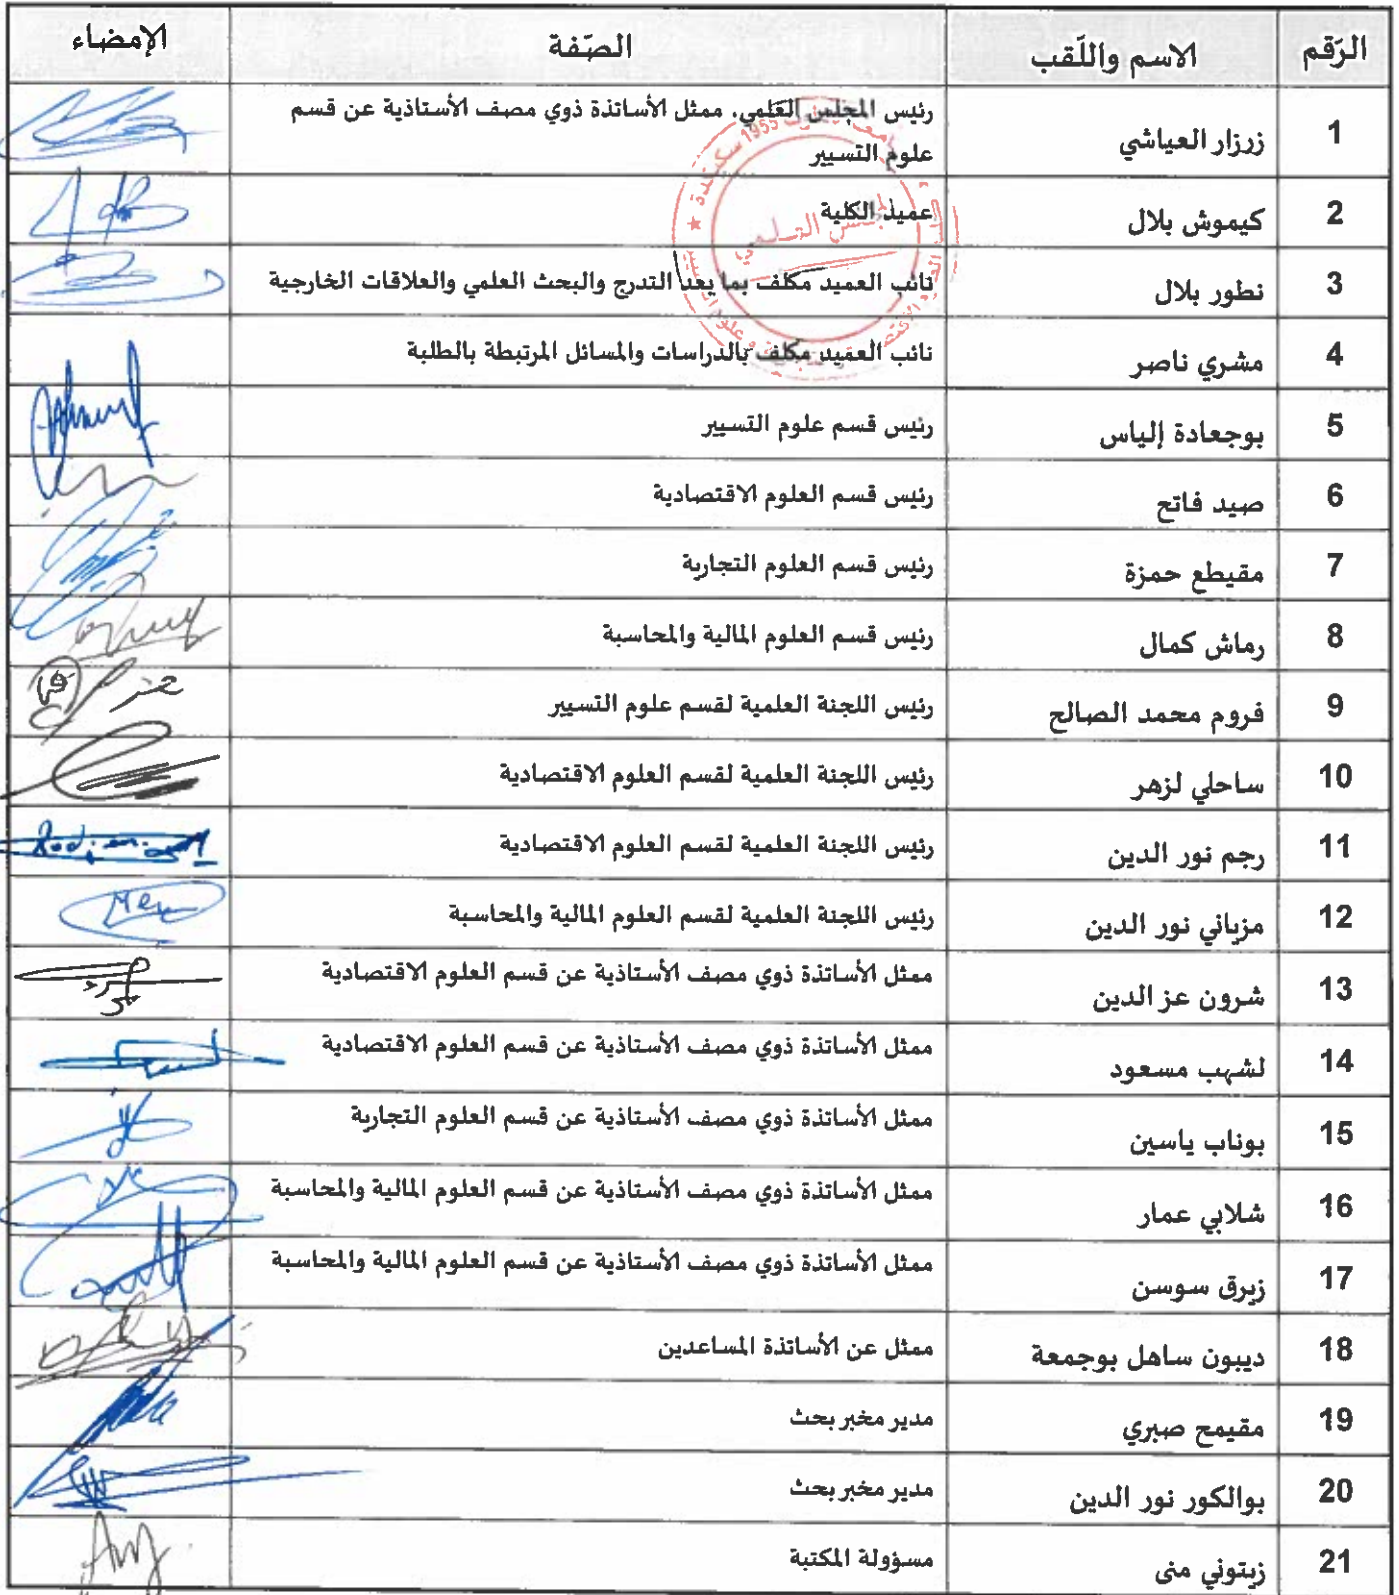 الرّقم الاسم واللّقب الصّفة الإمضاء
1 زرزار العياشي رئيس المجلس العلمي، ممثل الأساتذة ذوي مصف الأستاذية عن قسم
علوم التسيير
2 كيموش بلال عميد الكلية
3 نطور بلال نائب العميد مكلف بما بعد التدرج والبحث العلمي والعلاقات الخارجية
4 مشري ناصر نائب العميد مكلف بالدراسات والمسائل المرتبطة بالطلبة
5 بوجعادة إلياس رئيس قسم علوم التسيير
6 صيد فاتح رئيس قسم العلوم الاقتصادية
7 مقيطع حمزة رئيس قسم العلوم التجارية
8 رماش كمال رئيس قسم العلوم المالية والمحاسبة
9 فروم محمد الصالح رئيس اللجنة العلمية لقسم علوم التسيير
10 ساحلي لزهر رئيس اللجنة العلمية لقسم العلوم الاقتصادية
11 رجم نور الدين رئيس اللجنة العلمية لقسم العلوم الاقتصادية
12 مزياني نور الدين رئيس اللجنة العلمية لقسم العلوم المالية والمحاسبة
13 شرون عز الدين ممثل الأساتذة ذوي مصف الأستاذية عن قسم العلوم الاقتصادية
14 لشهب مسعود ممثل الأساتذة ذوي مصف الأستاذية عن قسم العلوم الاقتصادية
15 بوناب ياسين ممثل الأساتذة ذوي مصف الأستاذية عن قسم العلوم التجارية
16 شلابي عمار ممثل الأساتذة ذوي مصف الأستاذية عن قسم العلوم المالية والمحاسبة
17 زيرق سوسن ممثل الأساتذة ذوي مصف الأستاذية عن قسم العلوم المالية والمحاسبة
18 ديبون ساهل بوجمعة ممثل عن الأساتذة المساعدين
19 مقيمح صبري مدير مخبر بحث
20 بوالكور نور الدين مدير مخبر بحث
21 زيتوني منى مسؤولة المكتبة
المجلس العلمي